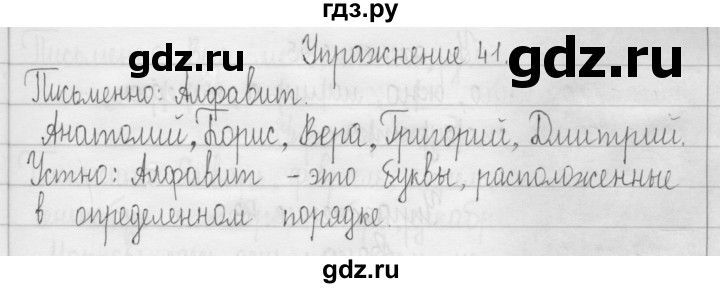 гдз.ру
Упражнение 41.
gdz.ru
Письменно: Алфавит.
Анатолий, Борис, Вера, Григорий, Дмитрий.
Устно: Алфавит - это буквы, расположенные
в определенном порядке.
gdz.ru